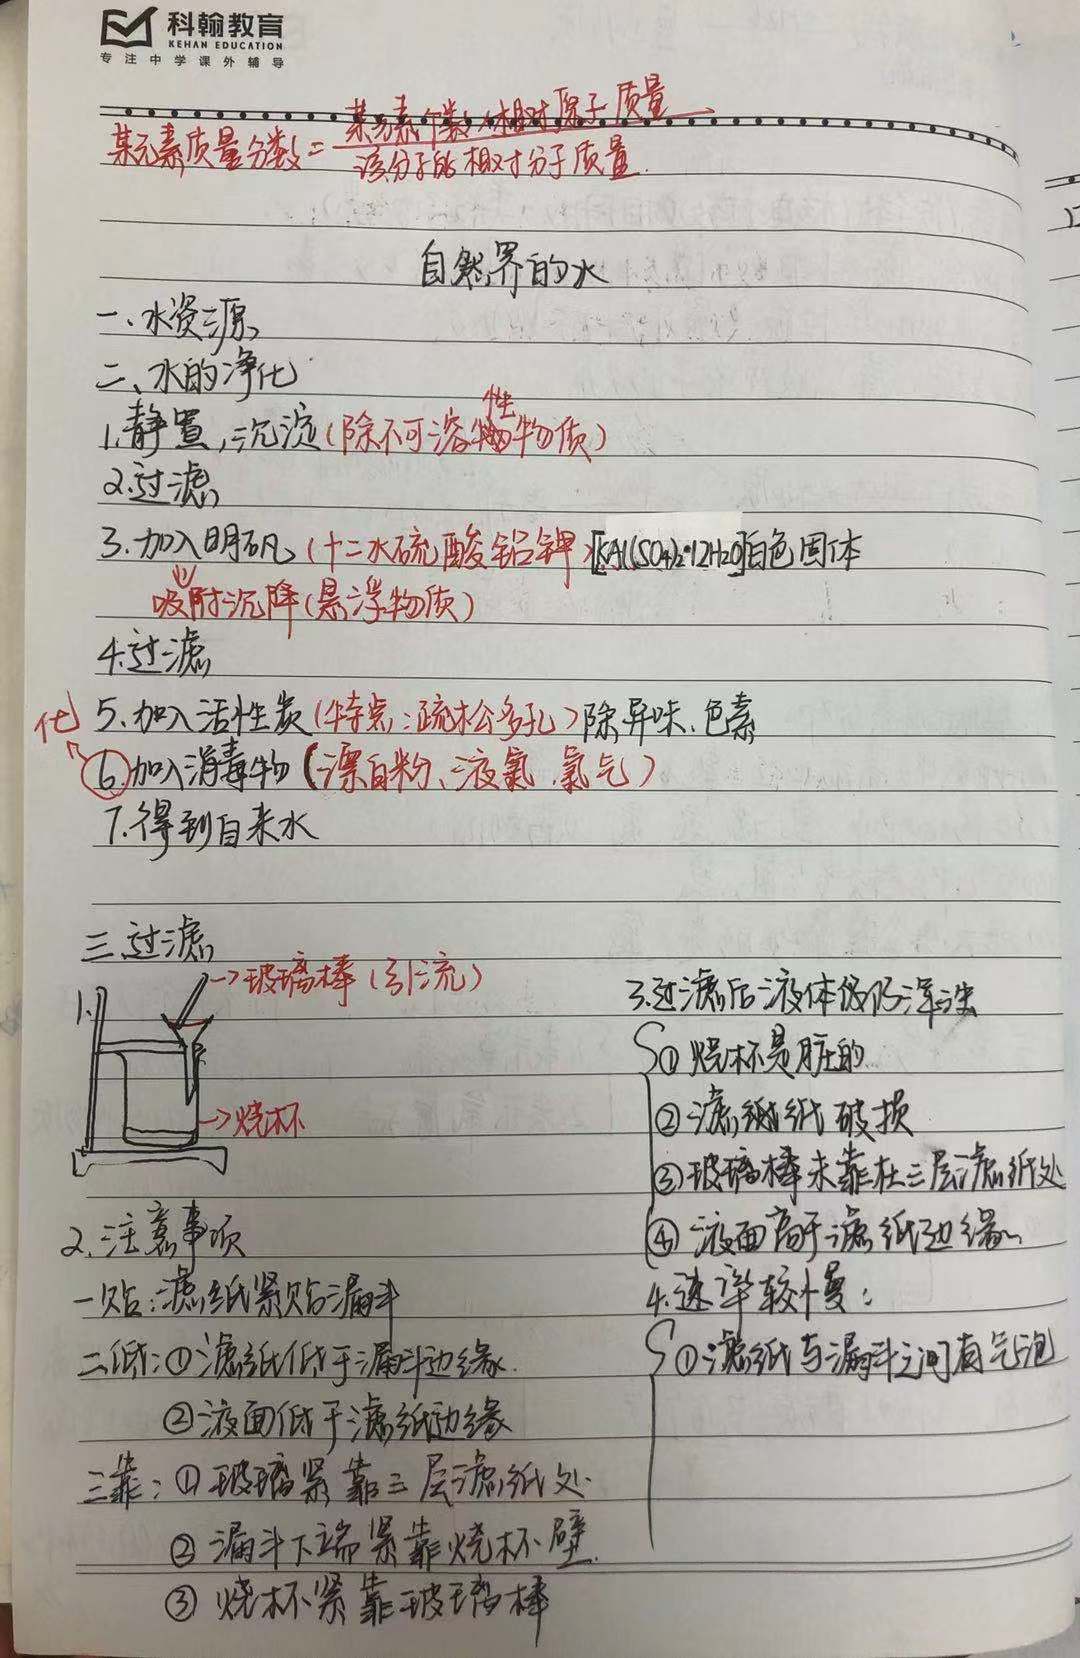 科翰教育
KEHAN EDUCATION
专注中学课外辅导
某元素质量分数=某元素个数×相对原子质量
该分子的相对分子质量
自然界的水
一、水资源
二、水的净化
1.静置,沉淀(除不可溶性物质)
2.过滤
3.加入明矾(十二水硫酸铝钾)[KAl(SO4)2·12H2O]白色固体
吸附沉降(悬浮物质)
4.过滤
5.加入活性炭(特点:疏松多孔)除异味、色素
化
⑥加入消毒物(漂白粉、液氯、氯气)
7.得到自来水
三.过滤
1.
→玻璃棒(引流)
→烧杯
2.注意事项
一贴:滤纸紧贴漏斗
二低:①滤纸低于漏斗边缘.
②液面低于滤纸边缘
三靠:①玻璃紧靠三层滤纸处
②漏斗下端紧靠烧杯壁
③烧杯紧靠玻璃棒
3.过滤后液体仍浑浊
①烧杯是脏的
②滤纸破损
③玻璃棒未靠在三层滤纸处
④液面高于滤纸边缘
4.速率较慢:
①滤纸与漏斗之间有气泡